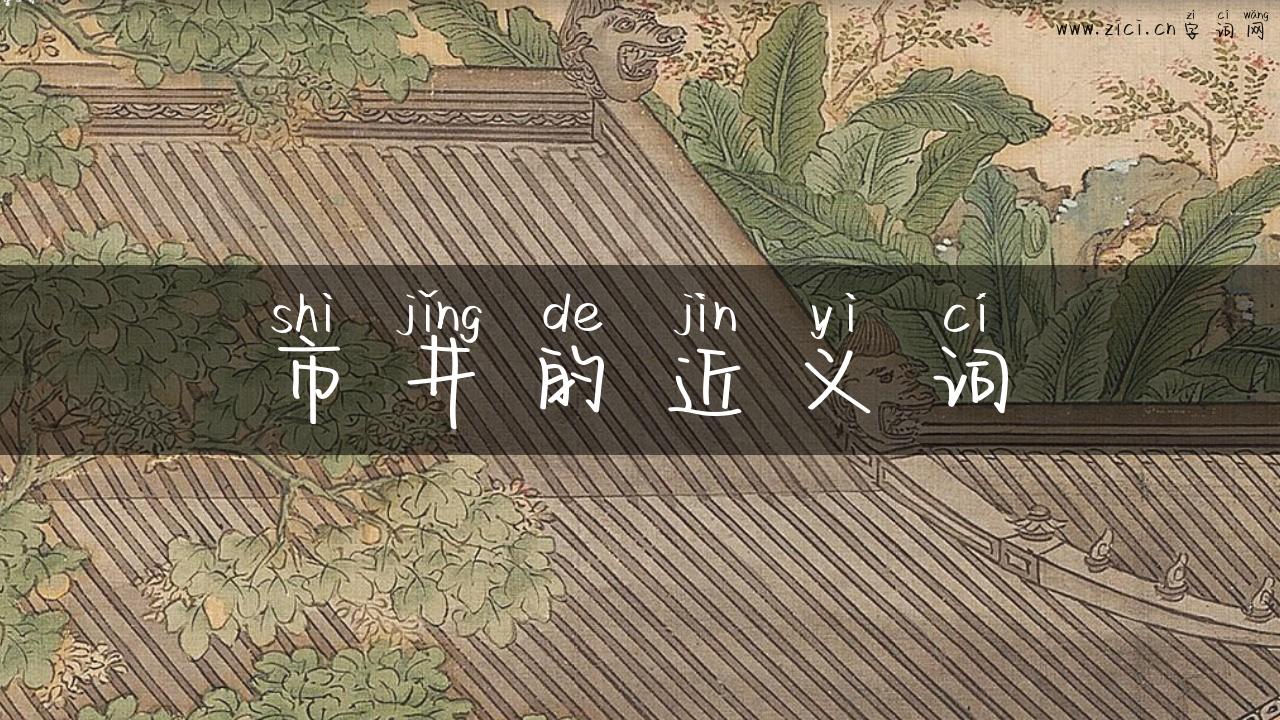 zì cí wǎng
www.zici.cn 字词网
shì jǐng de jìn yì cí
市井的近义词